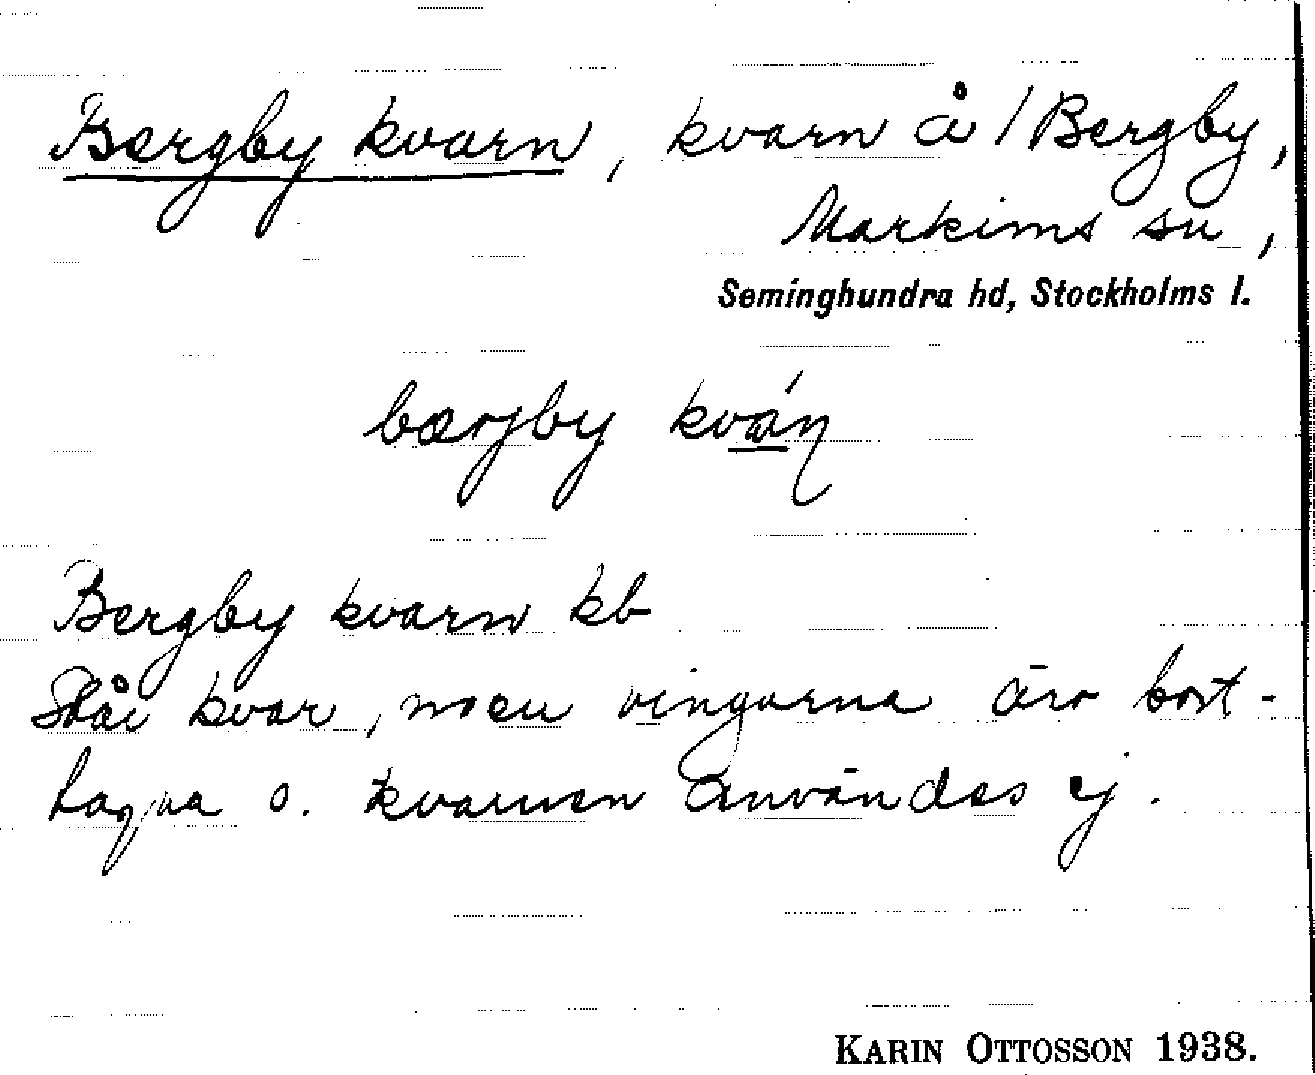 Bergby kvarn, kvarn å / Bergby,
Markims sn,
Seminghundra hd, Stockholms l.
bærjby kváɳ
Bergby kvarn kb
Står kvar, men vingarna äro bort-
tagna o. kvarnen användes ej.
KARIN OTTOSSON 1938.